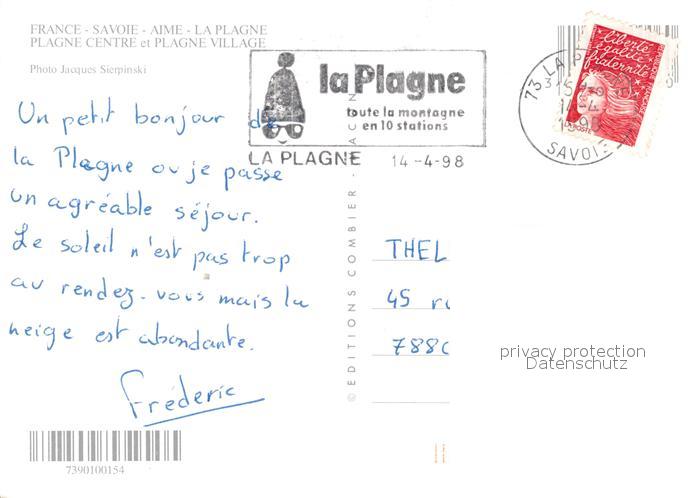 FRANCE - SAVOIE - AIME - LA PLAGNE
PLAGNE CENTRE et PLAGNE VILLAGE
Photo Jacques Sierpinski
Un petit bonjour de
la Plagne ou je passe
un agréable séjour.
Le soleil n'est pas trop
au rendez-vous mais la
neige est abondante.
Fréderic
7390100154
la Plagne
toute la montagne
en 10 stations
LA PLAGNE 14-4-98
© EDITIONS COMBIER - MACON
73 LA P
15
14-4
1998
SAVOIE
liberté
égalité
fraternité
LA POSTE
THEL
45
7880
privacy protection
Datenschutz